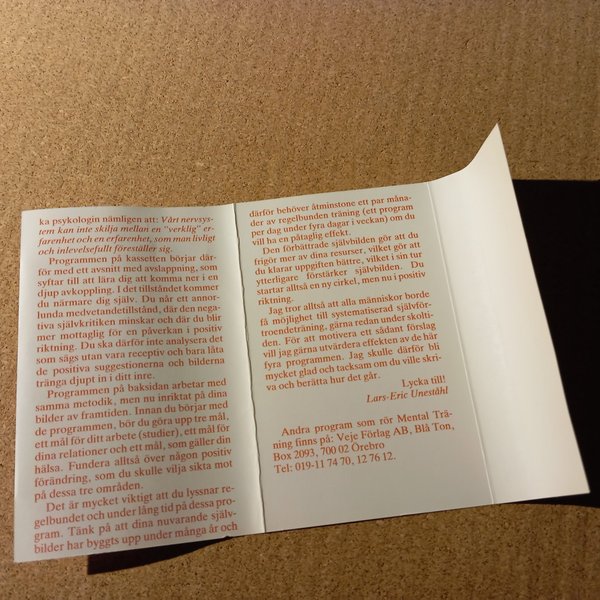 ka psykologin nämligen att: Vårt nervsys-
tem kan inte skilja mellan en "verklig" er-
farenhet och en erfarenhet, som man livligt
och inlevelsefullt föreställer sig.
Programmen på kassetten börjar där-
för med ett avsnitt med avslappning, som
syftar till att lära dig att komma ner i en
djup avkoppling. I det tillståndet kommer
du närmare dig själv. Du når ett annor-
lunda medvetandetillstånd, där den nega-
tiva självkritiken minskar och där du blir
mer mottaglig för en påverkan i positiv
riktning. Du ska därför inte analysera det
som sägs utan vara receptiv och bara låta
de positiva suggestionerna och bilderna
tränga djupt in i ditt inre.
Programmen på baksidan arbetar med
samma metodik, men nu inriktat på dina
bilder av framtiden. Innan du börjar med
de programmen, bör du göra upp tre mål,
ett mål för ditt arbete (studier), ett mål för
dina relationer och ett mål, som gäller din
hälsa. Fundera alltså över någon positiv
förändring, som du skulle vilja sikta mot
på dessa tre områden.
Det är mycket viktigt att du lyssnar re-
gelbundet och under lång tid på dessa pro-
gram. Tänk på att dina nuvarande själv-
bilder har byggts upp under många år och
därför behöver åtminstone ett par måna-
der av regelbunden träning (ett program
per dag under fyra dagar i veckan) om du
vill ha en påtaglig effekt.
Den förbättrade självbilden gör att du
frigör mer av dina resurser, vilket gör att
du klarar uppgiften bättre, vilket i sin tur
ytterligare förstärker självbilden. Du
startar alltså en ny cirkel, men nu i positiv
riktning.
Jag tror alltså att alla människor borde
få möjlighet till systematiserad självför-
troendeträning, gärna redan under skolti-
den. För att motivera ett sådant förslag
vill jag gärna utvärdera effekten av de här
fyra programmen. Jag skulle därför bli
mycket glad och tacksam om du ville skri-
va och berätta hur det går.
Lycka till!
Lars-Eric Uneståhl
Andra program som rör Mental Trä-
ning finns på: Veje Förlag AB, Blå Ton,
Box 2093, 700 02 Örebro
Tel: 019-11 74 70, 12 76 12.